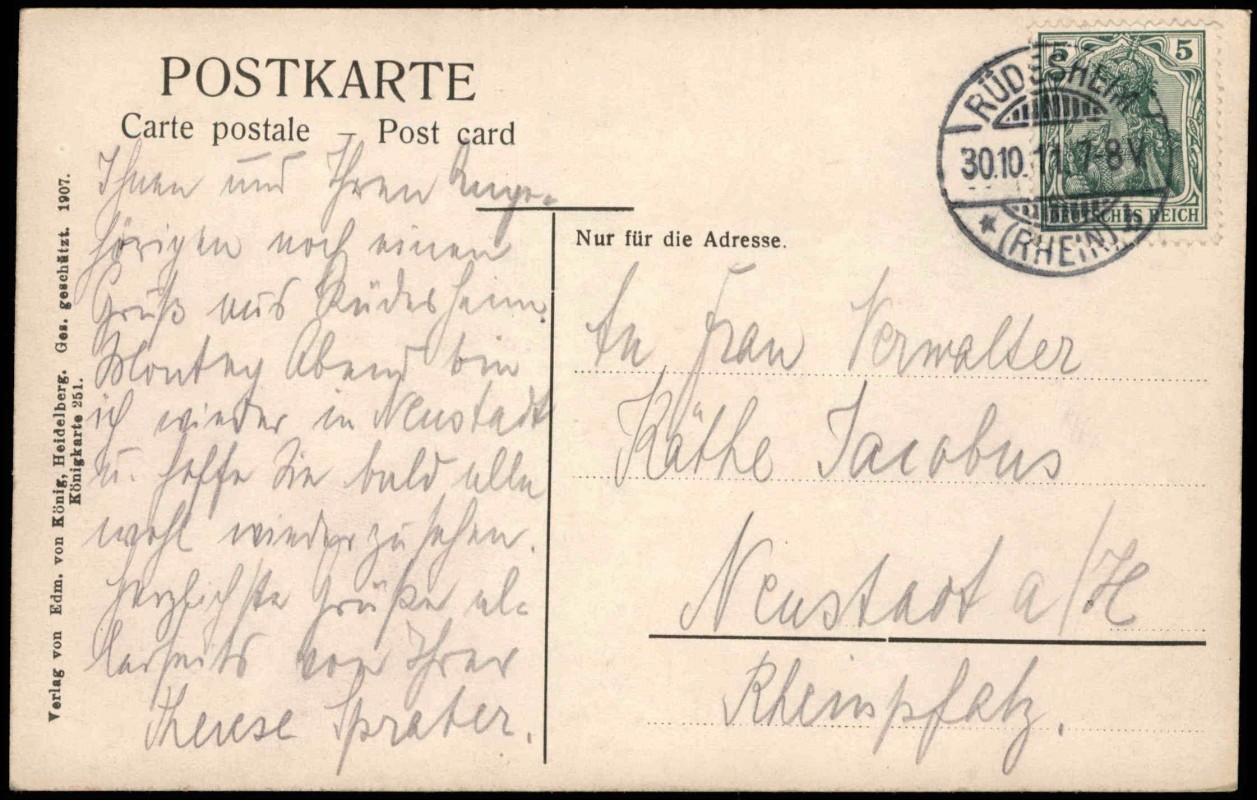 POSTKARTE
Carte postale – Post card
Ihnen und Ihren Ange-
hörigen noch einen
Gruß aus Rüdesheim.
Montag Abend bin
ich wieder in Neustadt
u. hoffe Sie bald alle
wohl wiederzusehen.
Herzlichste Grüße al-
lerseits von Ihrer
Therese Sprater.
Verlag von Edm. von König, Heidelberg. Ges. geschützt. 1907.
Königkarte 251.
5 5
DEUTSCHES REICH
RÜDESHEIM
30.10.11. 7-8V
* (RHEIN) b
Nur für die Adresse.
An Frau Verwalter
Käthe Jacobus
Neustadt a/H
Rheinpfalz.